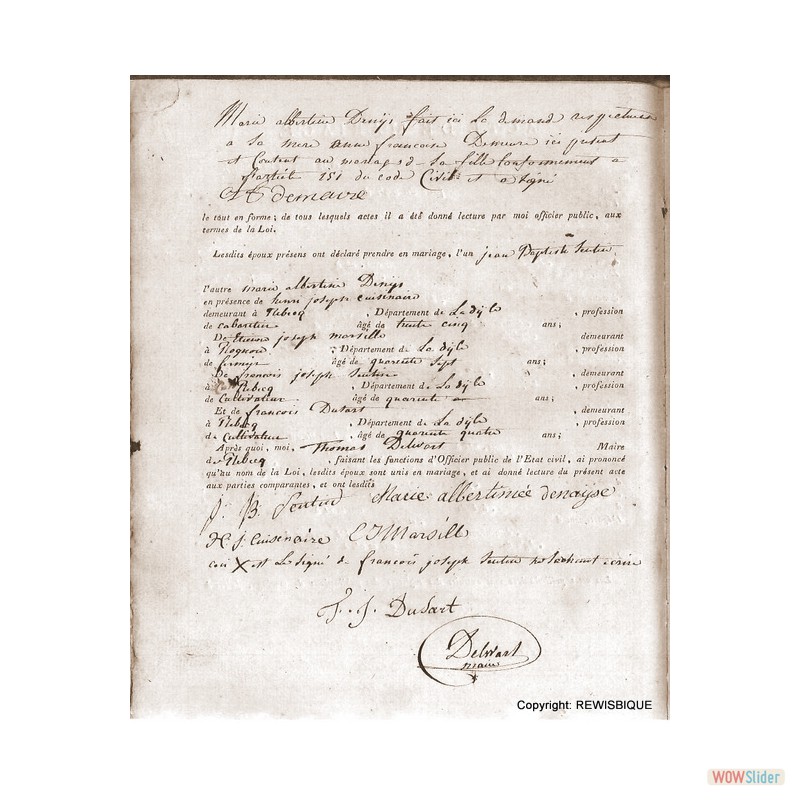 Marie albertine Denys fait ici la demande respectueuse
a sa mere anne francoise Demeure ici present
et Content au mariage d sa fille Conformement a
l'article 151 du code Civil et a signé
AF demaire
le tout en forme ; de tous lesquels actes il a été donné lecture par moi officier public, aux
termes de la Loi.
Lesdits époux présens ont déclaré prendre en mariage, l'un jean Baptiste Sentin
l'autre marie albertine Denys
en présence de henri joseph cuisenaire
demeurant à Rebecq , Département de La dyle , profession
de cabaretier âgé de trente cinq ans ;
De Etienne joseph marsille demeurant
à Rognon , Département de La dyle , profession
de fermier âgé de quarente sept ans ;
De francois joseph Sentin , demeurant
à Rebecq , Département de La dyle , profession
de Cultivateur âgé de quarente ans ;
Et de francois Dusart , demeurant
à Rebecq , Département de La dyle , profession
de Cultivateur âgé de quarente quatre ans ;
Après quoi, moi, Thomas Delwart Maire
de Rebecq , faisant les fonctions d'Officier public de l'Etat civil, ai prononcé
qu'au nom de la Loi, lesdits époux sont unis en mariage, et ai donné lecture du présent acte
aux parties comparantes, et ont lesdits
J. B. Sentin Marie albertinée denayse
H. J. Cuisenaire E J Marsill
ceci X est Le signé de francois joseph Sentin ne sachant ecrire
F. J. Dusart
Delwart
maire
Copyright: REWISBIQUE
WOWSlider